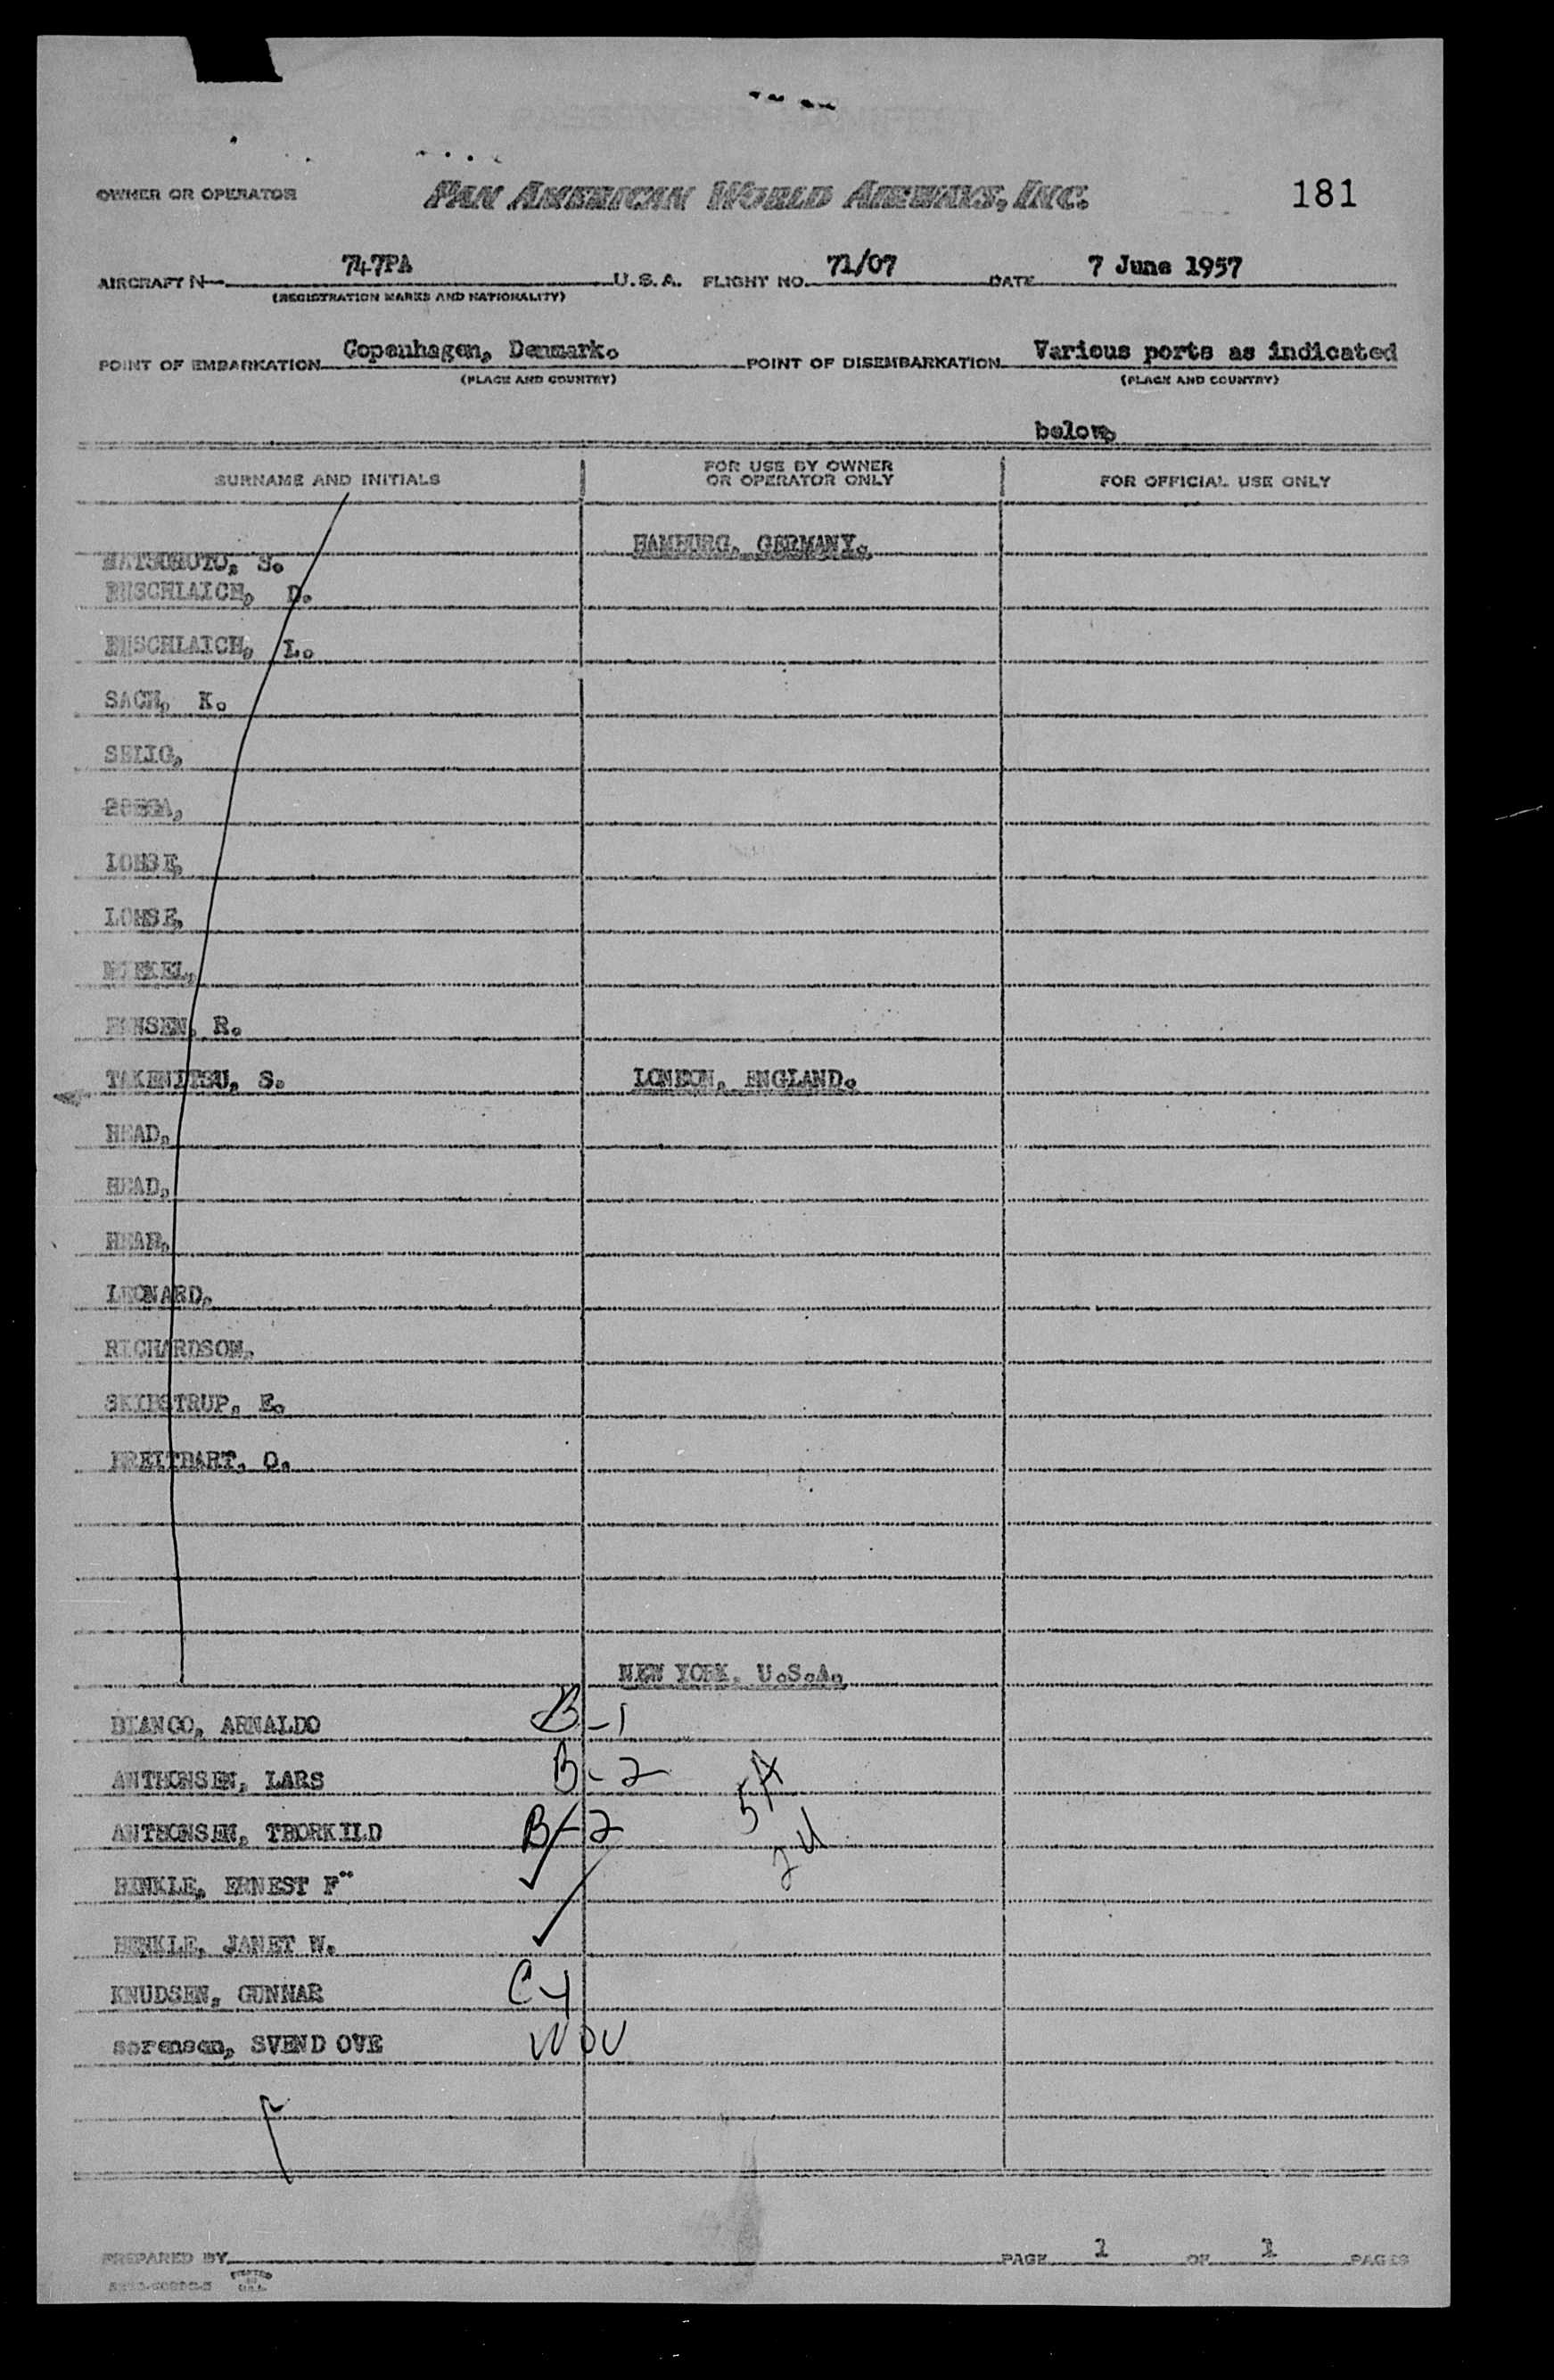 OWNER OR OPERATOR PAN AMERICAN WORLD AIRWAYS, INC. 181
AIRCRAFT N 747PA U.S.A. FLIGHT NO. 71/07 DATE 7 June 1957
(REGISTRATION MARKS AND NATIONALITY)
POINT OF EMBARKATION Copenhagen, Denmark. POINT OF DISEMBARKATION Various ports as indicated
(PLACE AND COUNTRY) (PLACE AND COUNTRY)
below,
SURNAME AND INITIALS FOR USE BY OWNER OR OPERATOR ONLY FOR OFFICIAL USE ONLY
HAMBURG, GERMANY.
MATSUMOTO, S.
D.
L.
SACH, K.
SELIG,
LOHSE,
LOHSE,
R.
TAKEMITSU, S. LONDON, ENGLAND.
HEAD,
HEAD,
HEAD,
LEONARD,
RICHARDSON,
SKIBSTRUP, E.
BREITBART, O.
NEW YORK, U.S.A.
ARNALDO B-1
ANTHONSEN, LARS B-2
ANTHONSEN, THORKILD B-2
HINKLE, ERNEST F"
HENKLE, JANET W.
KNUDSEN, GUNNAR
sorensen, SVEND OVE
PREPARED BY PAGE 1 OF 1 PAGES
PRINTED IN U.S.A.